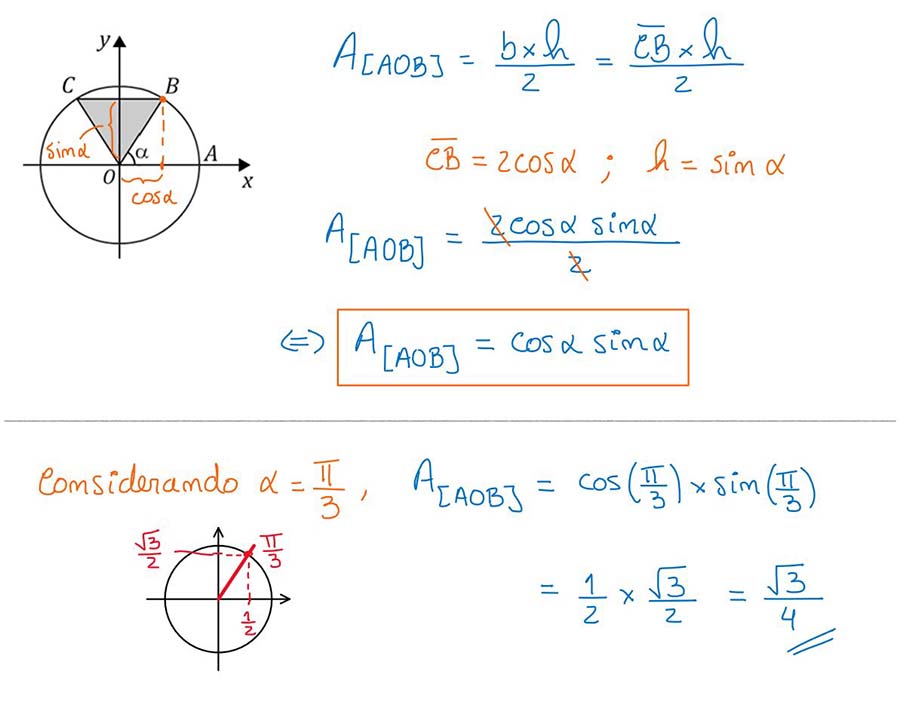 y
C B
sinα
α A
O x
cosα
A[AOB] = b×h/2 = C̅B̅×h/2
C̅B̅ = 2cosα ; h = sinα
A[AOB] = 2cosα sinα/2
⇔ A[AOB] = cosα sinα
Considerando α = π/3, A[AOB] = cos(π/3) × sin(π/3)
√3/2 π/3
1/2
= 1/2 × √3/2 = √3/4